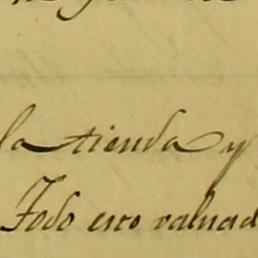 la tienda y
Todo esto valuad